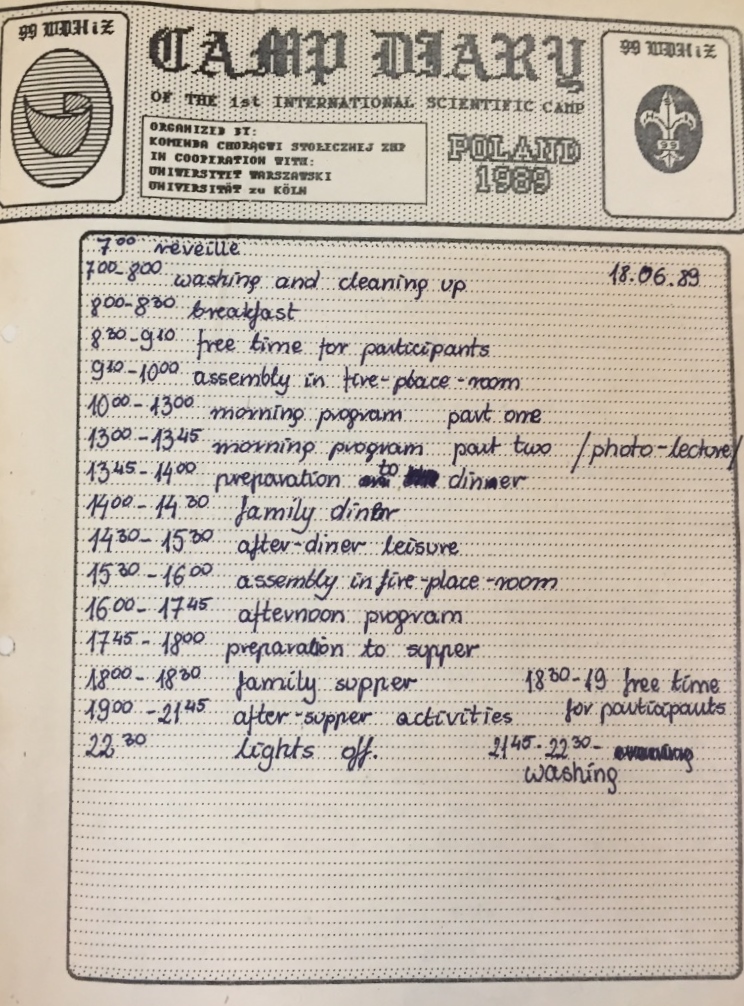 99 WDHiZ
CAMP DIARY
OF THE 1st INTERNATIONAL SCIENTIFIC CAMP
ORGANIZED BY:
KOMENDA CHORĄGWI STOŁECZNEJ ZHP
IN COOPERATION WITH:
UNIWERSYTET WARSZAWSKI
UNIVERSITÄT zu KÖLN
POLAND
1989
99 WDHiZ
99
7⁰⁰ reveille
18.06.89
7⁰⁰-8⁰⁰ washing and cleaning up
8⁰⁰-8³⁰ breakfast
8³⁰-9³⁰ free time for participants
9³⁰-10⁰⁰ assembly in fire-place-room
10⁰⁰-13⁰⁰ morning program part one
13⁰⁰-13⁴⁵ morning program part two /photo-lecture/
13⁴⁵-14⁰⁰ preparation to dinner
14⁰⁰-14³⁰ family diner
14³⁰-15³⁰ after-diner leisure
15³⁰-16⁰⁰ assembly in fire-place-room
16⁰⁰-17⁴⁵ afternoon program
17⁴⁵-18⁰⁰ preparation to supper
18⁰⁰-18³⁰ family supper
18³⁰-19 free time
for participants
19⁰⁰-21⁴⁵ after-supper activities
22³⁰ lights off.
21⁴⁵-22³⁰-
washing